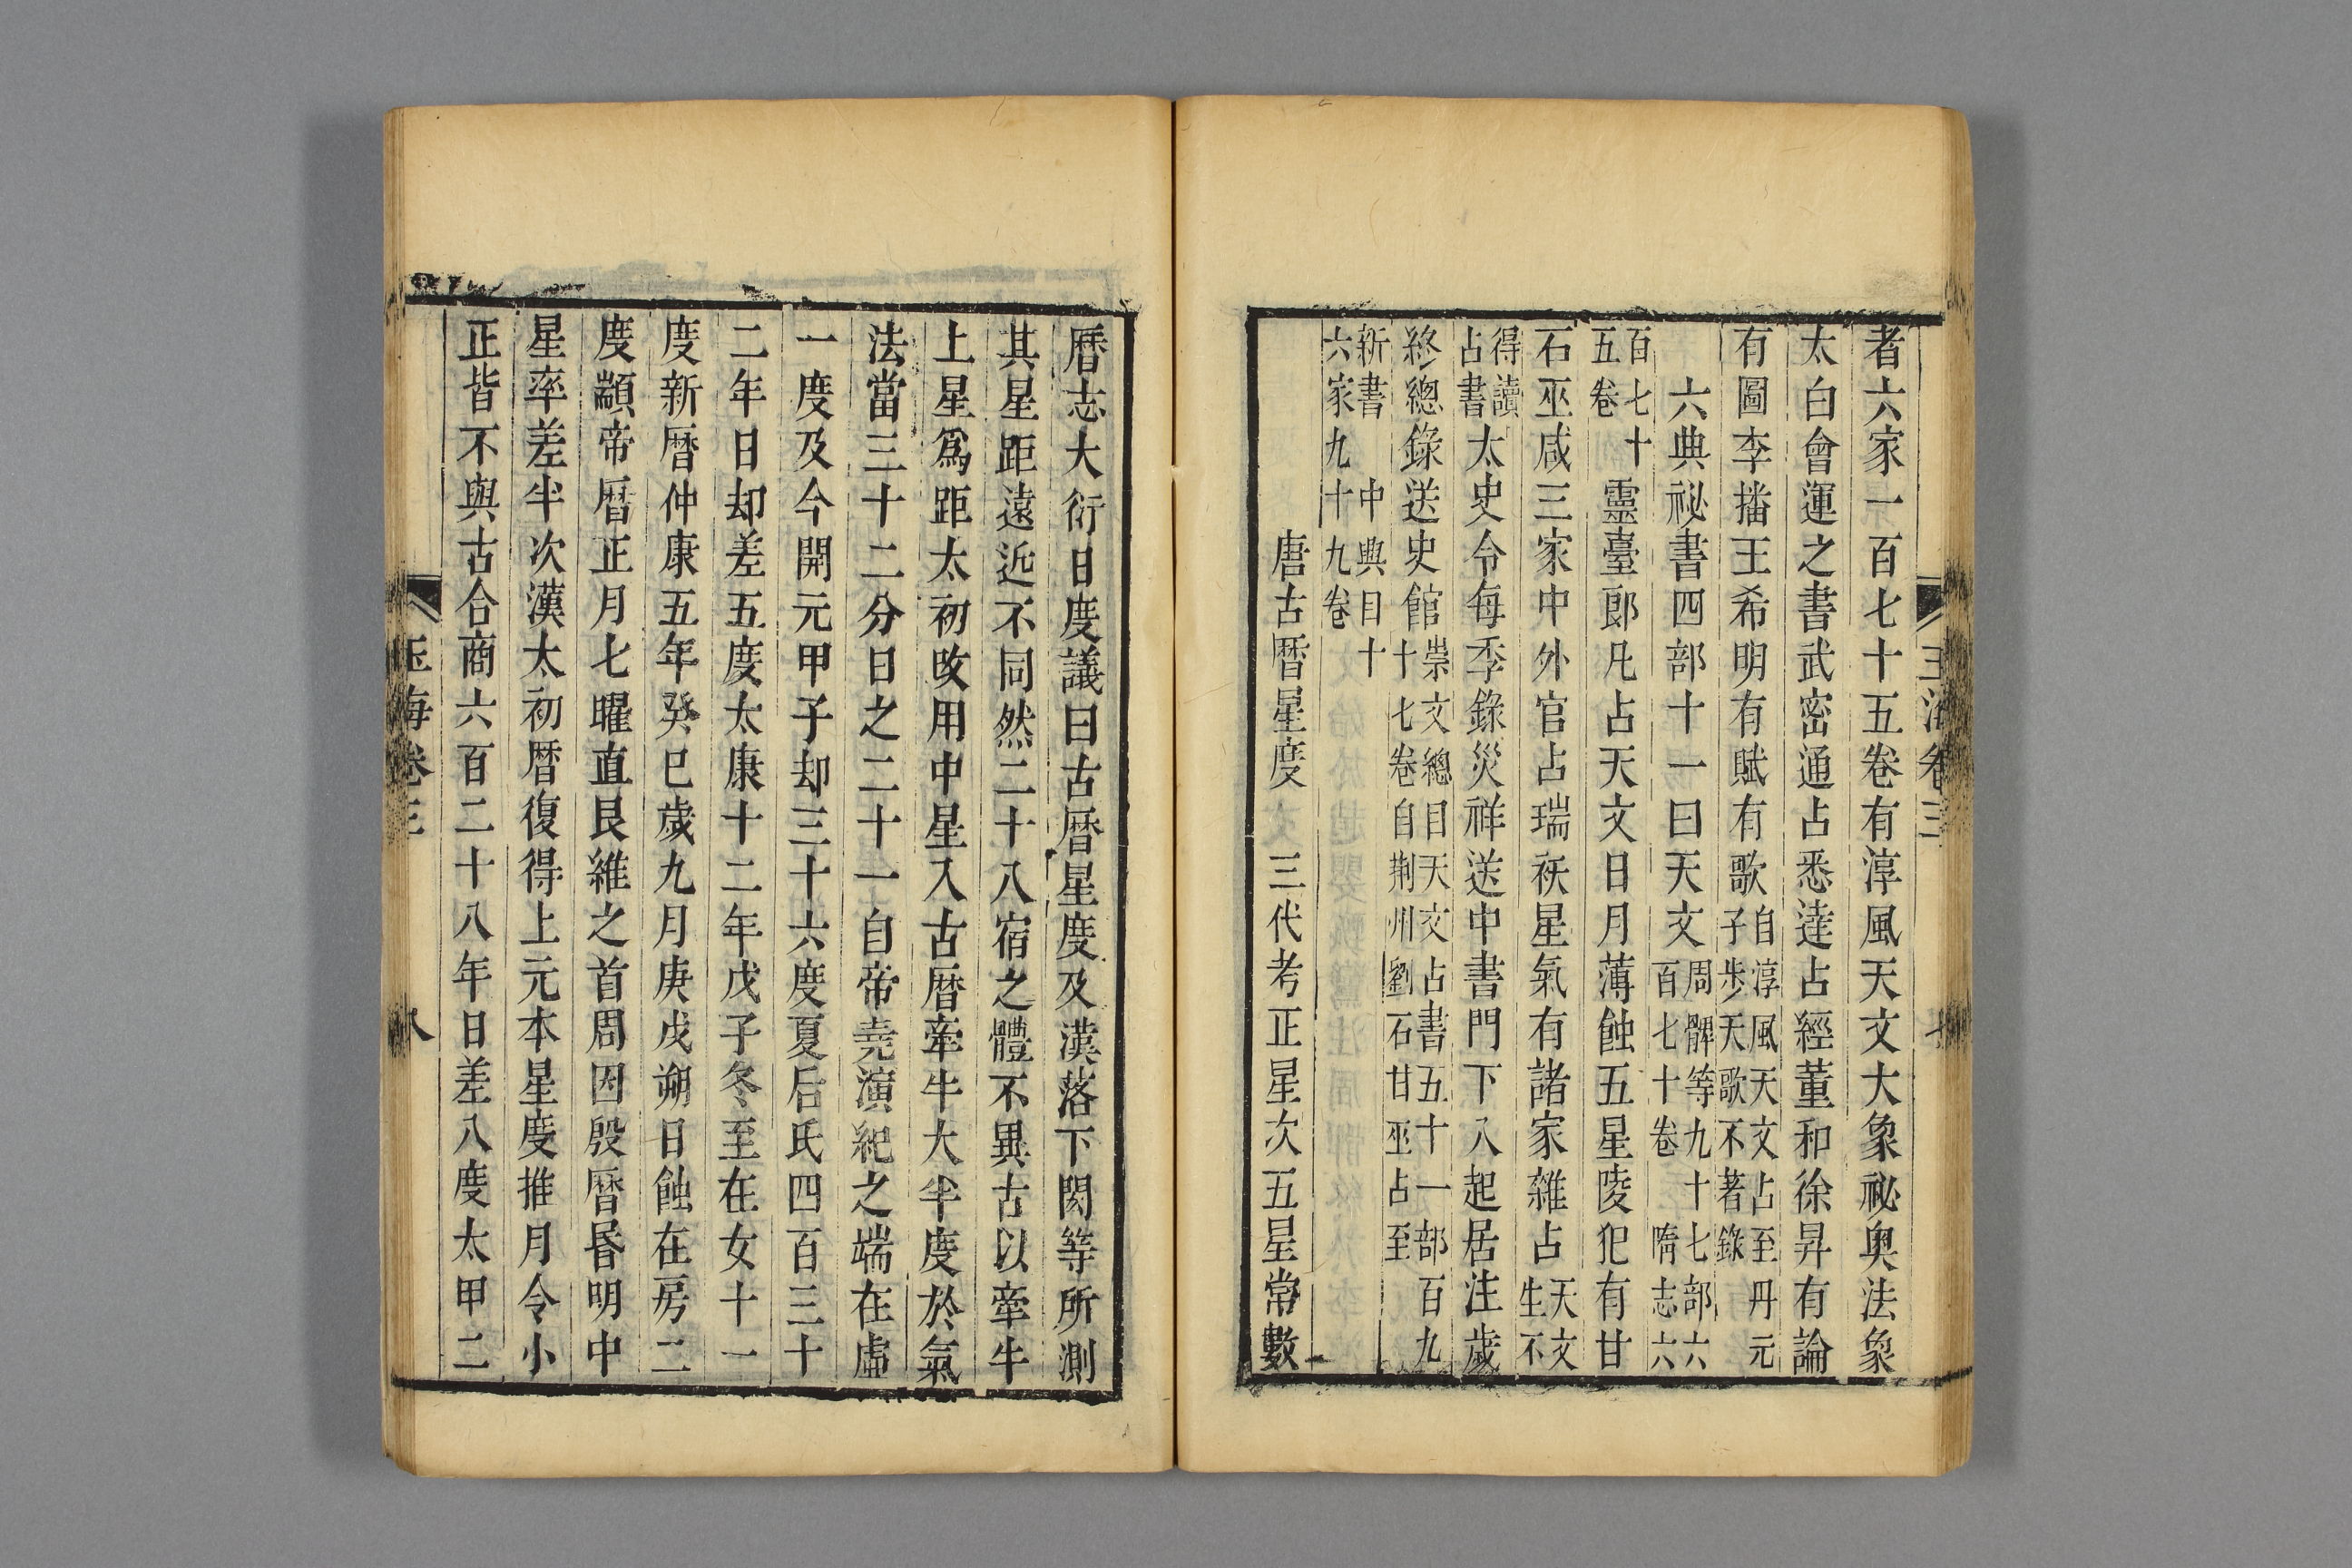 玉海卷三
者六家一百七十五卷有淳風天文大象祕奥法象
太白會運之書武密通占悉逹占經董和徐昇有論
有圖李播王希明有賦有歌自淳風天文占至丹元子步天歌不著錄
六典祕書四部十一曰天文周髀等九十七部六百七十卷隋志六
百七十五卷靈臺郎凡占天文日月薄蝕五星陵犯有甘
石巫咸三家中外官占瑞祅星氣有諸家雜占天文生不
得讀占書太史令每季錄災祥送中書門下入起居注歲
終總錄送史館崇文總目天文占書五十一部百九十七卷自荆州劉石甘巫占至
新書六家九中興目十十九卷
唐古暦星度　三代考正星次五星常數
暦志大衍日度議曰古暦星度及漢落下閎等所測
其星距遠近不同然二十八宿之體不異古以牽牛
上星爲距太初改用中星入古暦牽牛大半度於氣
法當三十二分日之二十一自帝堯演紀之端在虛
一度及今開元甲子却三十六度夏后氏四百三十
二年日却差五度太康十二年戊子冬至在女十一
度新暦仲康五年癸巳歲九月庚戌朔日蝕在房二
度顓帝暦正月七曜直艮維之首周因殷暦昬明中
星率差半次漢太初暦復得上元本星度推月令小
正皆不與古合商六百二十八年日差八度太甲二
玉海卷三
八